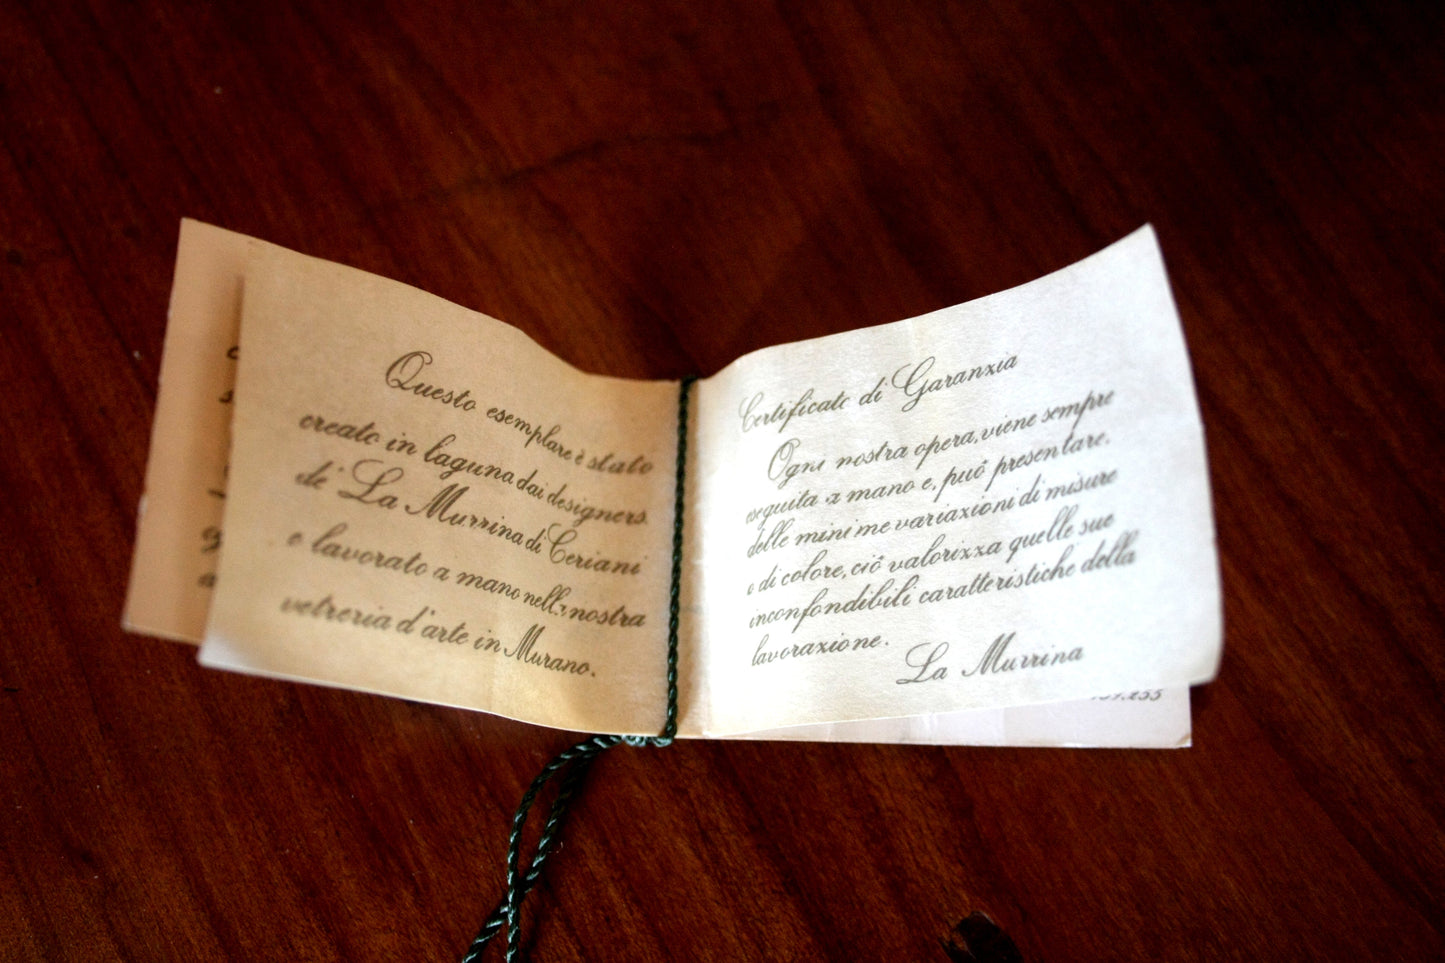 Questo esemplare è stato
creato in laguna dai designers
di La Murrina di Ceriani
e lavorato a mano nella nostra
vetreria d'arte in Murano.
Certificato di Garanzia
Ogni nostra opera, viene sempre
eseguita a mano e, può presentare,
delle minime variazioni di misure
e di colore, ciò valorizza quelle sue
inconfondibili caratteristiche della
lavorazione.
La Murrina